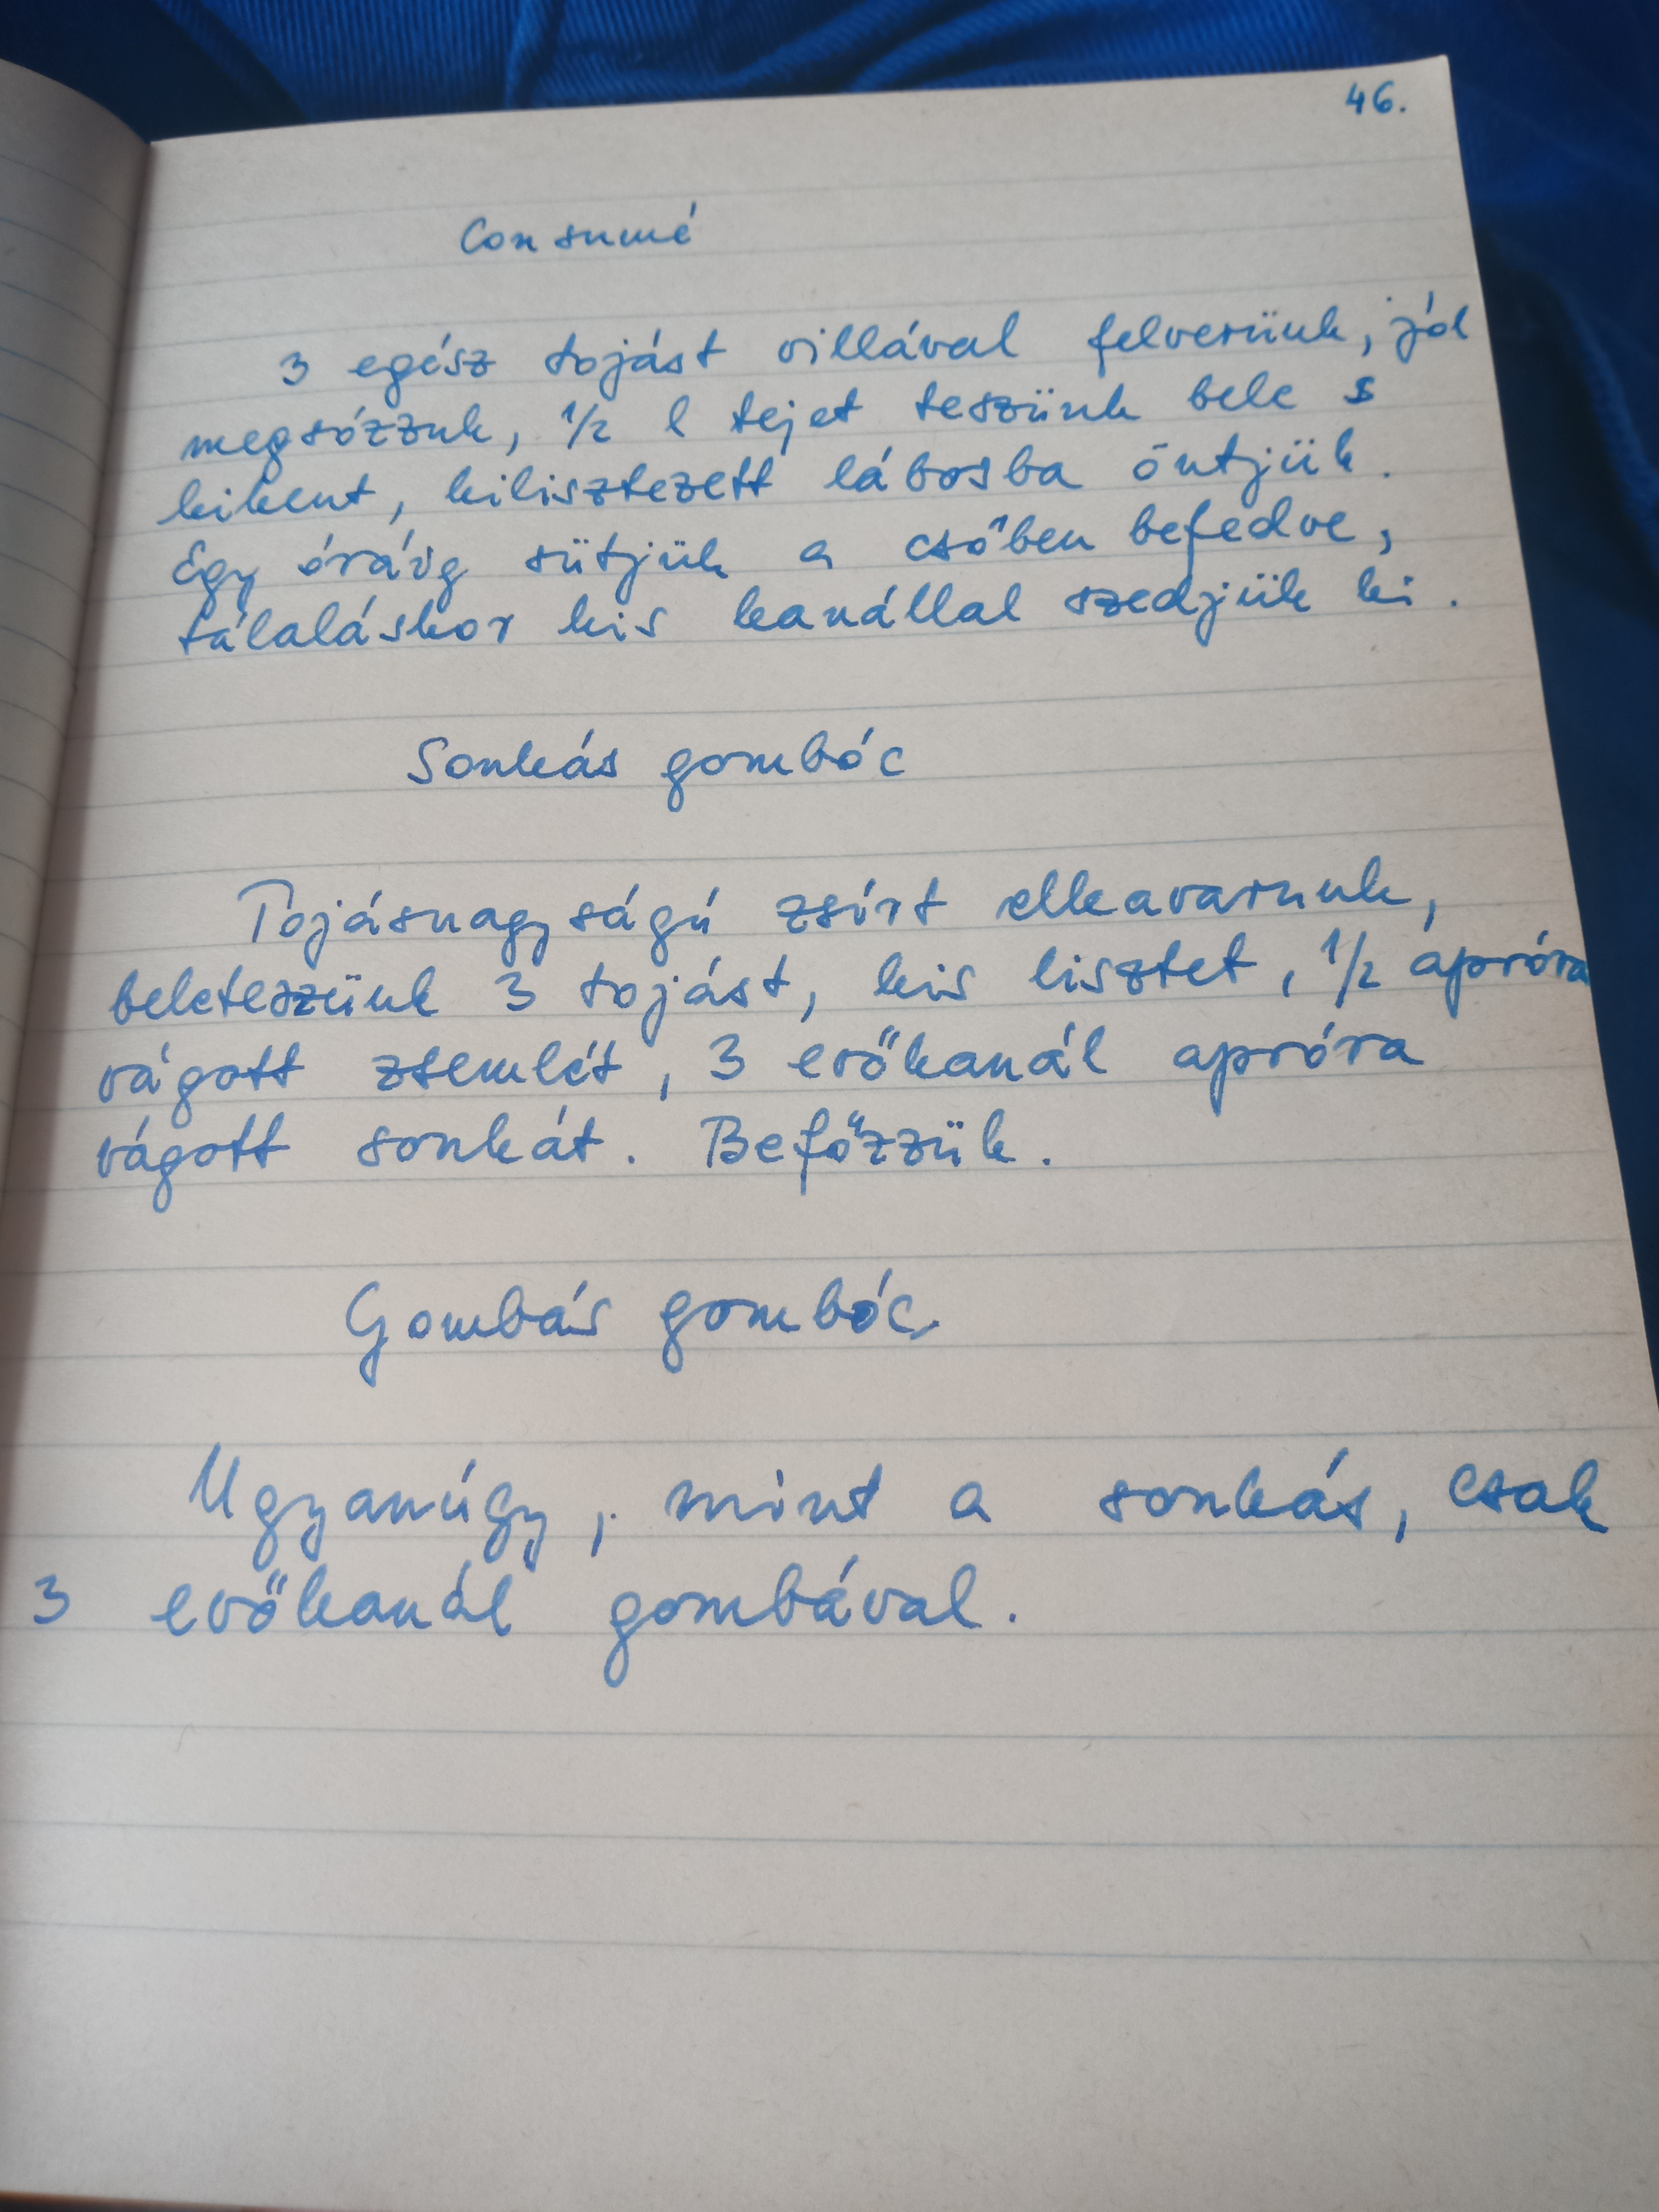 46.
Consumé
3 egész tojást villával felverünk, jól
megsózzuk, 1/2 l tejet teszünk bele s
kikent, kilisztezett lábosba öntjük.
Egy óráig sütjük a csőben befedve,
tálaláskor kis kanállal szedjük ki.
Sonkás gombóc
Tojásnagyságú zsírt elkavarunk,
beleteszünk 3 tojást, kis lisztet, 1/2 apróra
vágott zsemlét, 3 evőkanál apróra
vágott sonkát. Befőzzük.
Gombás gombóc.
Ugyanúgy, mint a sonkás, csak
3 evőkanál gombával.